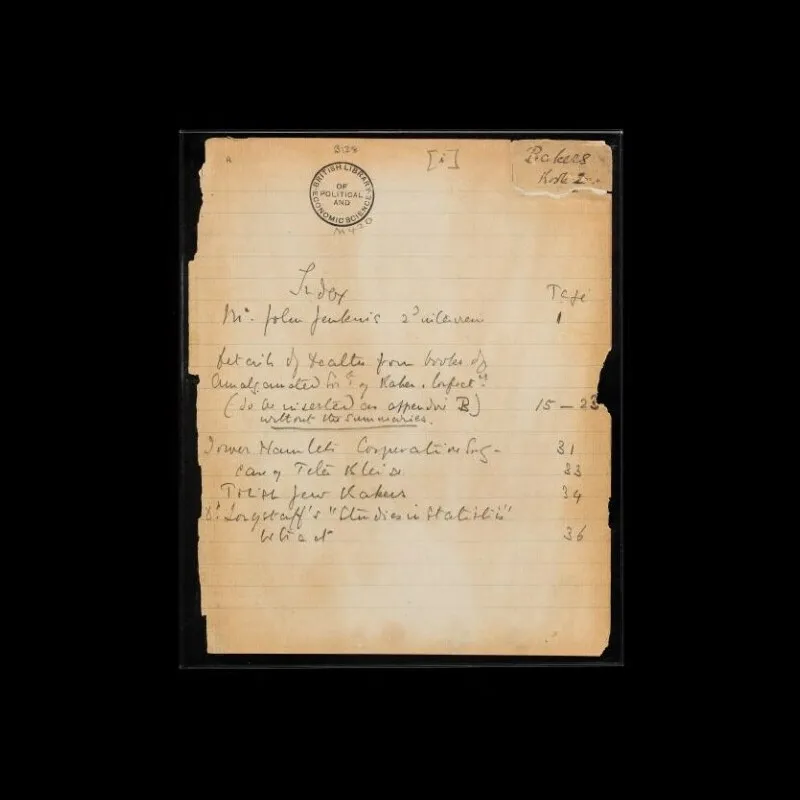 A
B:28
[i]
Bakers
Book 2
BRITISH LIBRARY
OF
POLITICAL
AND
ECONOMIC SCIENCE
Index
Page
Mr. John Jenkins 2d interview 1
Details of deaths from books of
Amalgamated Soc. of Baker. Confect.rs
(to be inserted as appendix B) 15 – 23
without the summaries.
Tower Hamlets Cooperative 31
Case of Peter Klein 33
Polish Jew Bakers 34
Dr Longstaff's "Studies in Statistics"
extract 36